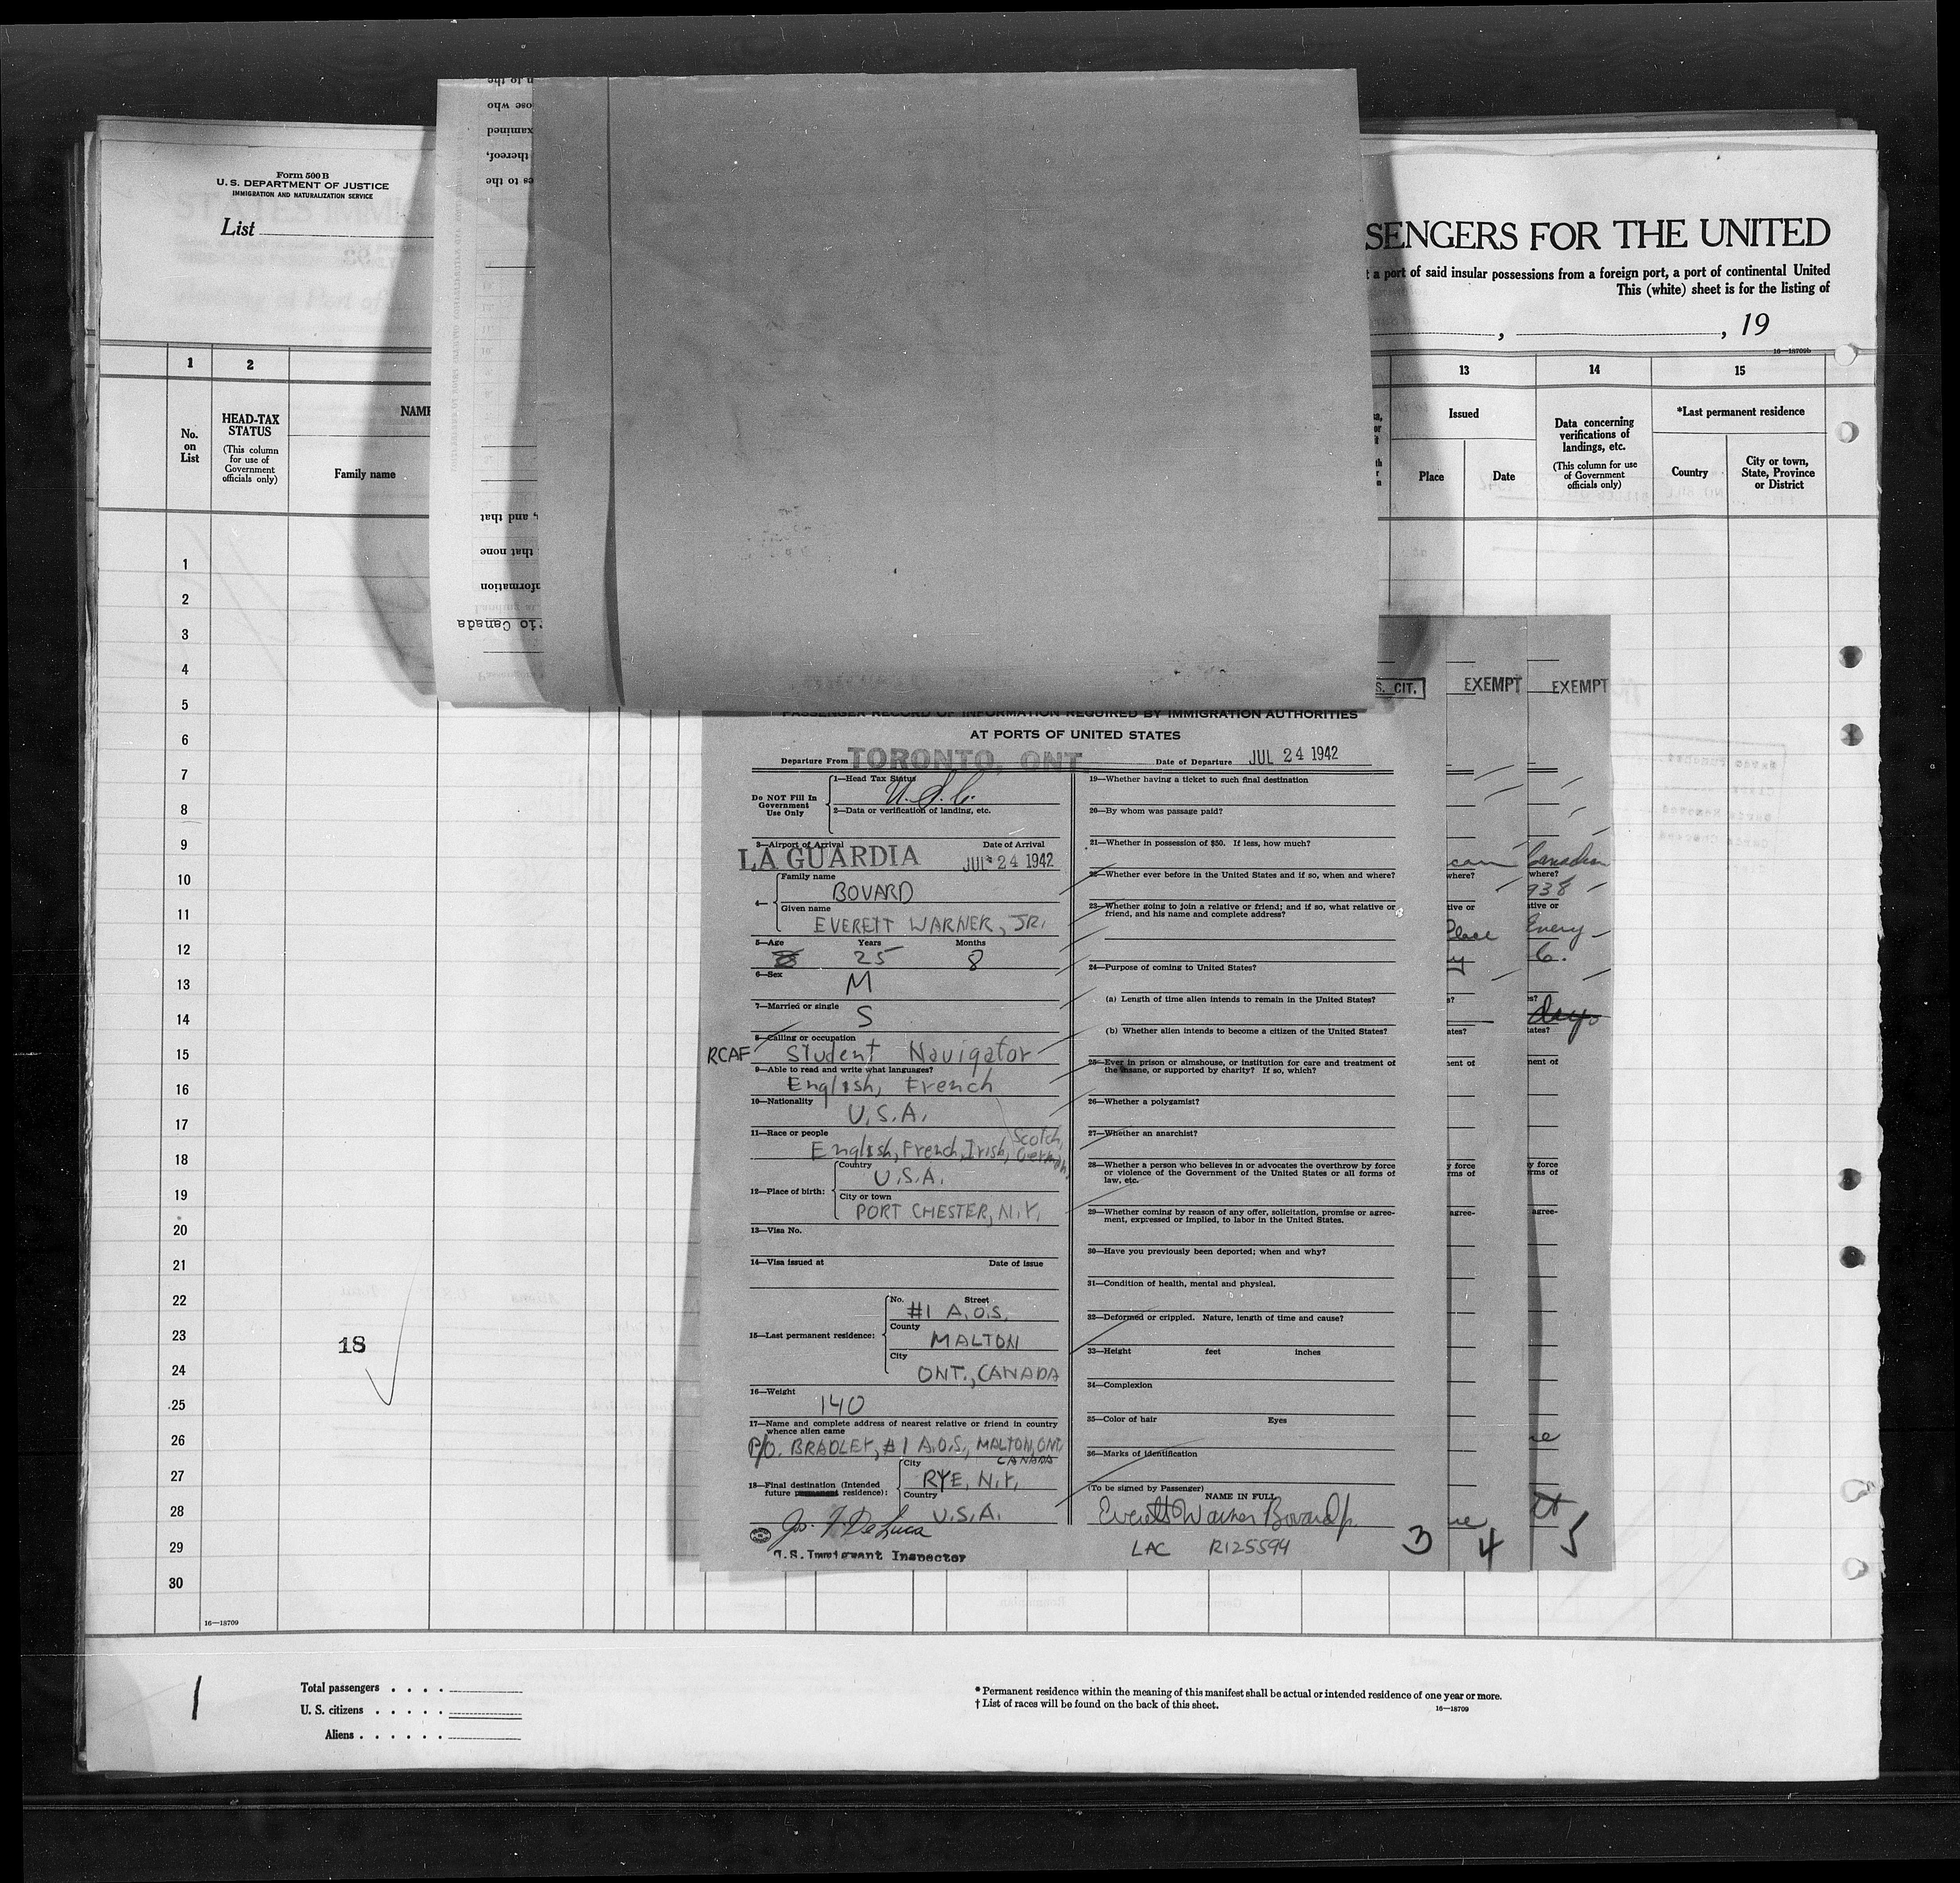 Form 500 B
U. S. DEPARTMENT OF JUSTICE
IMMIGRATION AND NATURALIZATION SERVICE
List
SENGERS FOR THE UNITED
t a port of said insular possessions from a foreign port, a port of continental United
This (white) sheet is for the listing of
, , 19
16—18709b
1 2 13 14 15
No. on List
HEAD-TAX STATUS
(This column for use of Government officials only)
NAME
Family name
Issued
Place Date
Data concerning verifications of landings, etc.
(This column for use of Government officials only)
*Last permanent residence
Country
City or town, State, Province or District
n to the
ose who
xamined
thereof,
es to the
, and that
that none
formation
io Canada
1
2
3
4
5
6
7
8
9
10
11
12
13
14
15
16
17
18
19
20
21
22
23
24
25
26
27
28
29
30
18
16—18709
S. CIT. EXEMPT EXEMPT
PASSENGER RECORD OF INFORMATION REQUIRED BY IMMIGRATION AUTHORITIES
AT PORTS OF UNITED STATES
Departure From TORONTO, ONT. Date of Departure JUL 24 1942
Do NOT Fill In Government Use Only
1—Head Tax Status
U. S. C.
2—Data or verification of landing, etc.
3—Airport of Arrival Date of Arrival
LA GUARDIA JUL 24 1942
4—
Family name
BOVARD
Given name
EVERETT WARNER, JR.
5—Age Years Months
25 8
6—Sex
M
7—Married or single
S
8—Calling or occupation
RCAF Student Navigator
9—Able to read and write what languages?
English, French
10—Nationality
U.S.A.
11—Race or people
English, French, Irish, Scotch, German
12—Place of birth:
Country
U.S.A.
City or town
PORT CHESTER, N.Y.
13—Visa No.
14—Visa issued at Date of issue
15—Last permanent residence:
No. Street
#1 A.O.S.
County
MALTON
City
ONT., CANADA
16—Weight
140
17—Name and complete address of nearest relative or friend in country
whence alien came
P/O. BRADLEY, #1 A.O.S., MALTON, ONT
CANADA
18—Final destination (Intended
future permanent residence):
City
RYE, N.Y.
Country
U.S.A.
Jos. F. De Luca
U.S. Immigrant Inspector
19—Whether having a ticket to such final destination
20—By whom was passage paid?
21—Whether in possession of $50. If less, how much?
22—Whether ever before in the United States and if so, when and where?
23—Whether going to join a relative or friend; and if so, what relative or
friend, and his name and complete address?
24—Purpose of coming to United States?
(a) Length of time alien intends to remain in the United States?
(b) Whether alien intends to become a citizen of the United States?
25—Ever in prison or almshouse, or institution for care and treatment of
the insane, or supported by charity? If so, which?
26—Whether a polygamist?
27—Whether an anarchist?
28—Whether a person who believes in or advocates the overthrow by force
or violence of the Government of the United States or all forms of
law, etc.
29—Whether coming by reason of any offer, solicitation, promise or agree-
ment, expressed or implied, to labor in the United States.
30—Have you previously been deported; when and why?
31—Condition of health, mental and physical.
32—Deformed or crippled. Nature, length of time and cause?
33—Height feet inches
34—Complexion
35—Color of hair Eyes
36—Marks of identification
(To be signed by Passenger)
NAME IN FULL
Everett Warner Bovard Jr.
LAC R125594
3 4 5
can Canadian
where? where?
938
tive or tive or
Place Every
y 6.
s? es?
days
ates? tates?
ent of ment of
y force y force
rms of rms of
agree- agree-
1
Total passengers . . . .
U. S. citizens . . . . .
Aliens . . . . . .
* Permanent residence within the meaning of this manifest shall be actual or intended residence of one year or more.
† List of races will be found on the back of this sheet.
16—18709